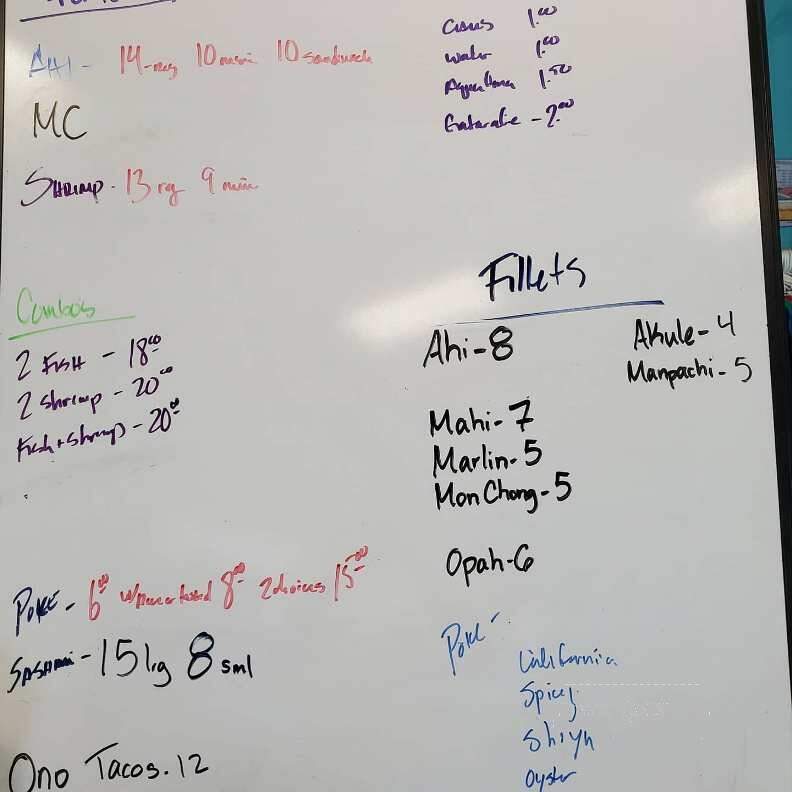 AHI - 14-reg 10 mini 10 sandwich
MC
SHRIMP - 13 rg 9 mini
Combos
2 FISH - 18.00
2 shrimp - 20.00
Fish + shrimp - 20.00
POKE - 6.00 8.00 2 choices 15.00
SASHIMI - 15 lrg 8 sml
Ono Tacos. 12
Cans 1.00
Water 1.00
1.50
Gatorade - 2.00
Fillets
Ahi - 8
Akule - 4
Manpachi - 5
Mahi - 7
Marlin - 5
Mon Chong - 5
Opah - 6
POKE -
California
Spicy
Shoyu
Oyster